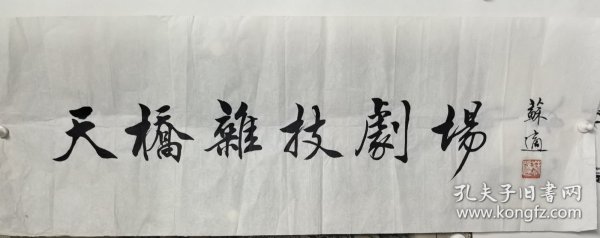 天橋雜技劇場
蘇適
孔夫子旧书网
www.kongfz.com